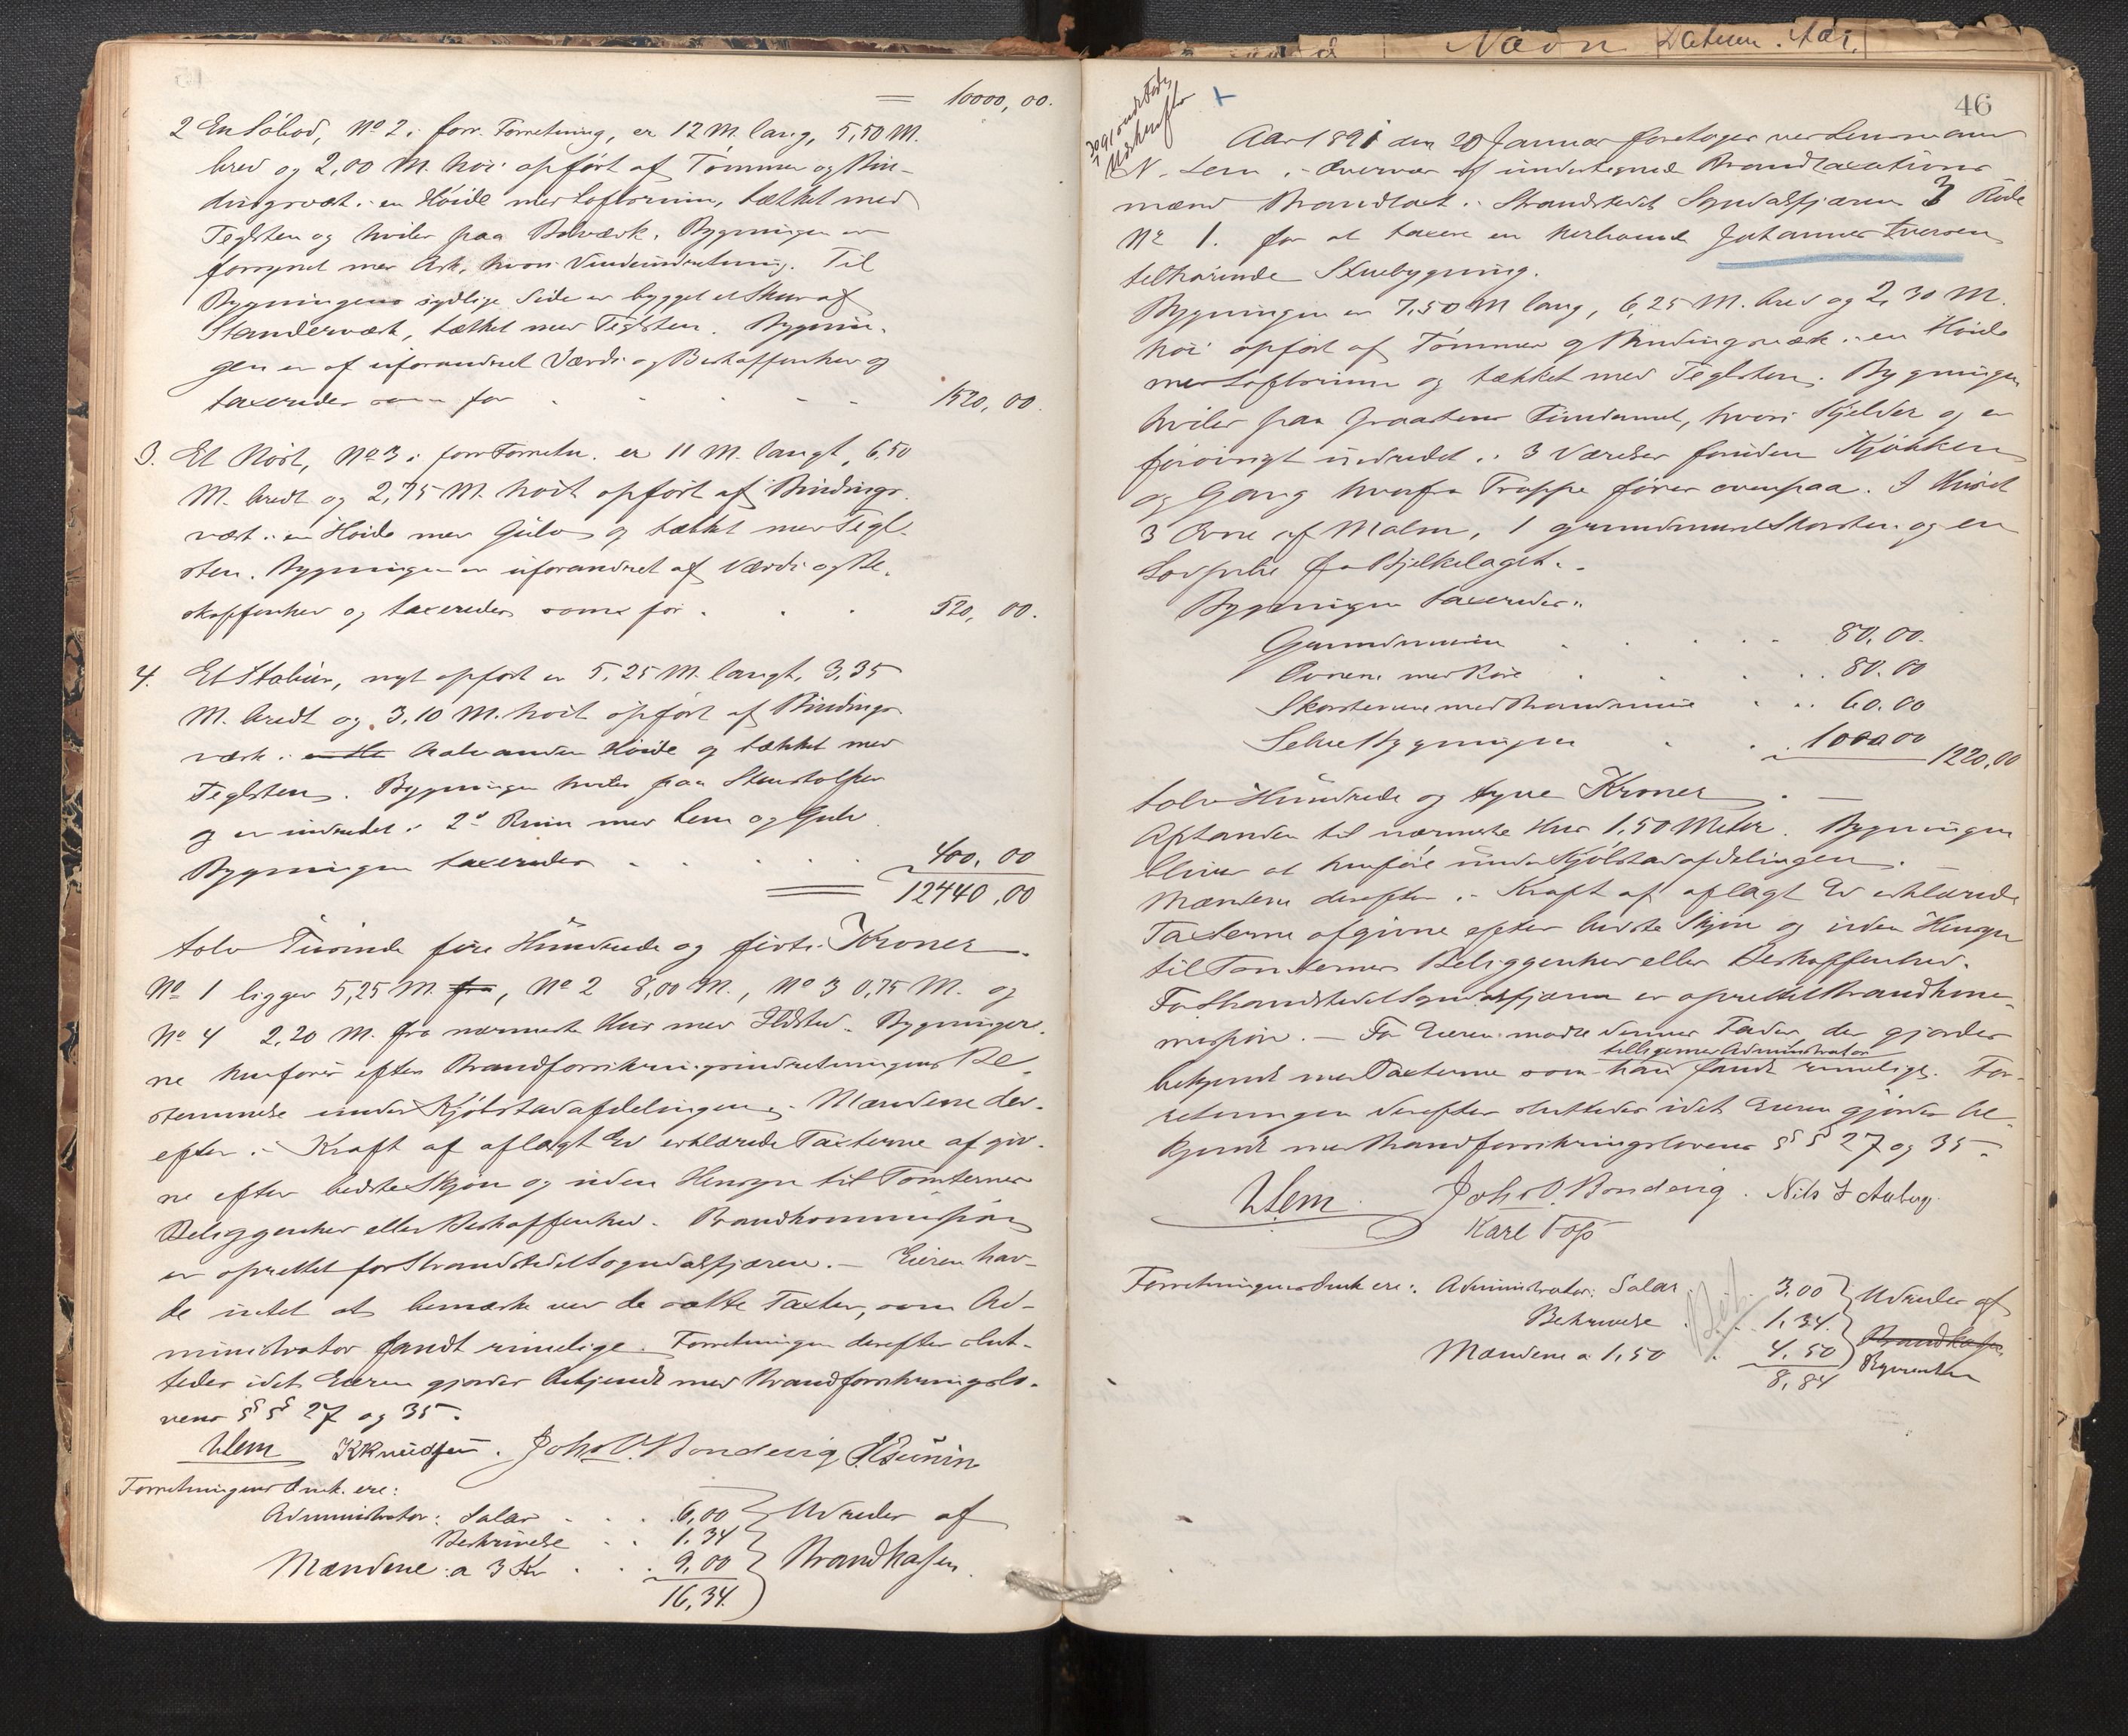 = 10000,00.
2 En Söbod, No 2 i forr. Forretning, er 12 M. lang, 5,50 M.
bred og 2,00 M. höi opfört af Tömmer og Bin-
dingsværk i en Höide med Loftsrum, tækket med
Teglsten og hviler paa Bolværk. Bygningen er
forsynet med Ark, hvori Vindeindretning. Til
Bygningens sydlige Side er bygget et Skur af
Standerværk, tækket med Teglsten. Bygnin-
gen er af uforandret Værdi og Beskaffenhed og
taxeredes som för . . . . 1520,00.
3. Et Nöst, No 3 i forr Forretn. er 11 M. langt, 6,50
M. bredt og 2,75 M. höit opfört af Bindings-
værk i en Höide med Gulv og tækket med Tegl-
sten. Bygningen er uforandret af Værdi og Be-
skaffenhed og taxeredes som för . . . 520,00.
4. Et Stabur, nyt opfört er 5,25 M. langt, 3,35
M. bredt og 3,10 M. höit opfört af Bindings-
værk i halvanden Höide og tækket med
Teglsten. Bygningen hviler paa Stenstolper
og er indredet i 2de Rum med Lem og Gulv.
Bygningen taxeredes . . . . 400,00
= 12440,00
tolv Tusinde fire Hundrede og firti Kroner.
No 1 ligger 5,25 M. fra, No 2 8,00 M., No 3 0,75 M. og
No 4 2,20 M. fra nærmeste Hus med Ildsted. Bygninger-
ne henföres efter Brandforsikringsindretningens Be-
stemmelse under Kjöbstadafdelingen. Mændene der-
efter i Kraft af aflagt Ed erklærede Taxterne afgiv-
ne efter bedste Skjön og uden Hensyn til Tomternes
Beliggenhed eller Beskaffenhed. Brandkommission
er oprettet for Strandstedet Sogndalsfjæren. — Eieren hav-
de intet at bemærke ved de satte Taxter, som Ad-
ministrator fandt rimelige. Forretningen derefter slut-
tedes idet Eieren gjordes bekjendt med Brandforsikringslo-
vens §§ 27 og 35.
NLem KKnudsen. Johs O. Bondevig
Forretningens Omk. ere:
Administrator: Salær . . . 6,00 } Udredes af
Beskrivelse . . 1,34
Mændene: a 3 Kr . . . 9,00 } Brandkassen.
16,34.
Navn Datum Aar.
46
Aar 1891 den 20 Januar foretoges ved Lensmand
N. Lem i Overvær af undertegnede Brandtaxations
mænd Brandtaxt i Strandstedet Sogndalsfjæren 3 Rode
No 1. for at taxere en herboende Johannes Iversen
tilhörende Stuebygning.
Bygningen er 7,50 M lang, 6,25 M. bred og 2,30 M.
höi opfört af Tömmer og Bindingsværk i en Höide
med Loftsrum og tækket med Teglsten. Bygningen
hviler paa graastens Fundament, hvori Kjelder og er
forövrigt indredet i 3 Værelser foruden Kjökken
og Gang hvorfra Trappe förer ovenpaa. I Huset
3 Ovne af Malm, 1 grundmuret Skorsten og en
fra Bjelkelaget.
Bygningen taxeredes:
Grundmuren . . . . 80.00.
Ovnene med Rör . . . . 80.00
Skorstenene med Brandmure . . 60.00
Selve Bygningen . . 1000.00 1220,00
tolv Hundrede og tyve Kroner . —
Afstanden til nærmeste Hus 1,50 Meter. Bygningen
bliver at henföre under Kjöbstadafdelingen.
Mændene derefter i Kraft af aflagt Ed erklærede
Taxterne afgivne efter bedste Skjön og uden Hensyn
til Tomternes Beliggenhed eller Beskaffenhed.
For Strandstedet Sogndalsfjæren er oprettet Brandkom-
mission. — For Eieren mödte dennes Fader, der gjordes
tilligemed Administrator
bekjendt med Taxterne som han fandt rimelige. For-
retningen derefter sluttedes idet Eieren gjordes be-
kjendt med Brandforsikringslovens §§ 27 og 35.
NLem. Johs O. Bondevig. Nils
Karl Foss
Forretningens Omk ere: Administrator: Salær . 3.00 } Udredes af
Beskrivelse . . 1.34. Brandkassen
Mændene a 1,50 . 4.50 } Rqvirenten
8,84